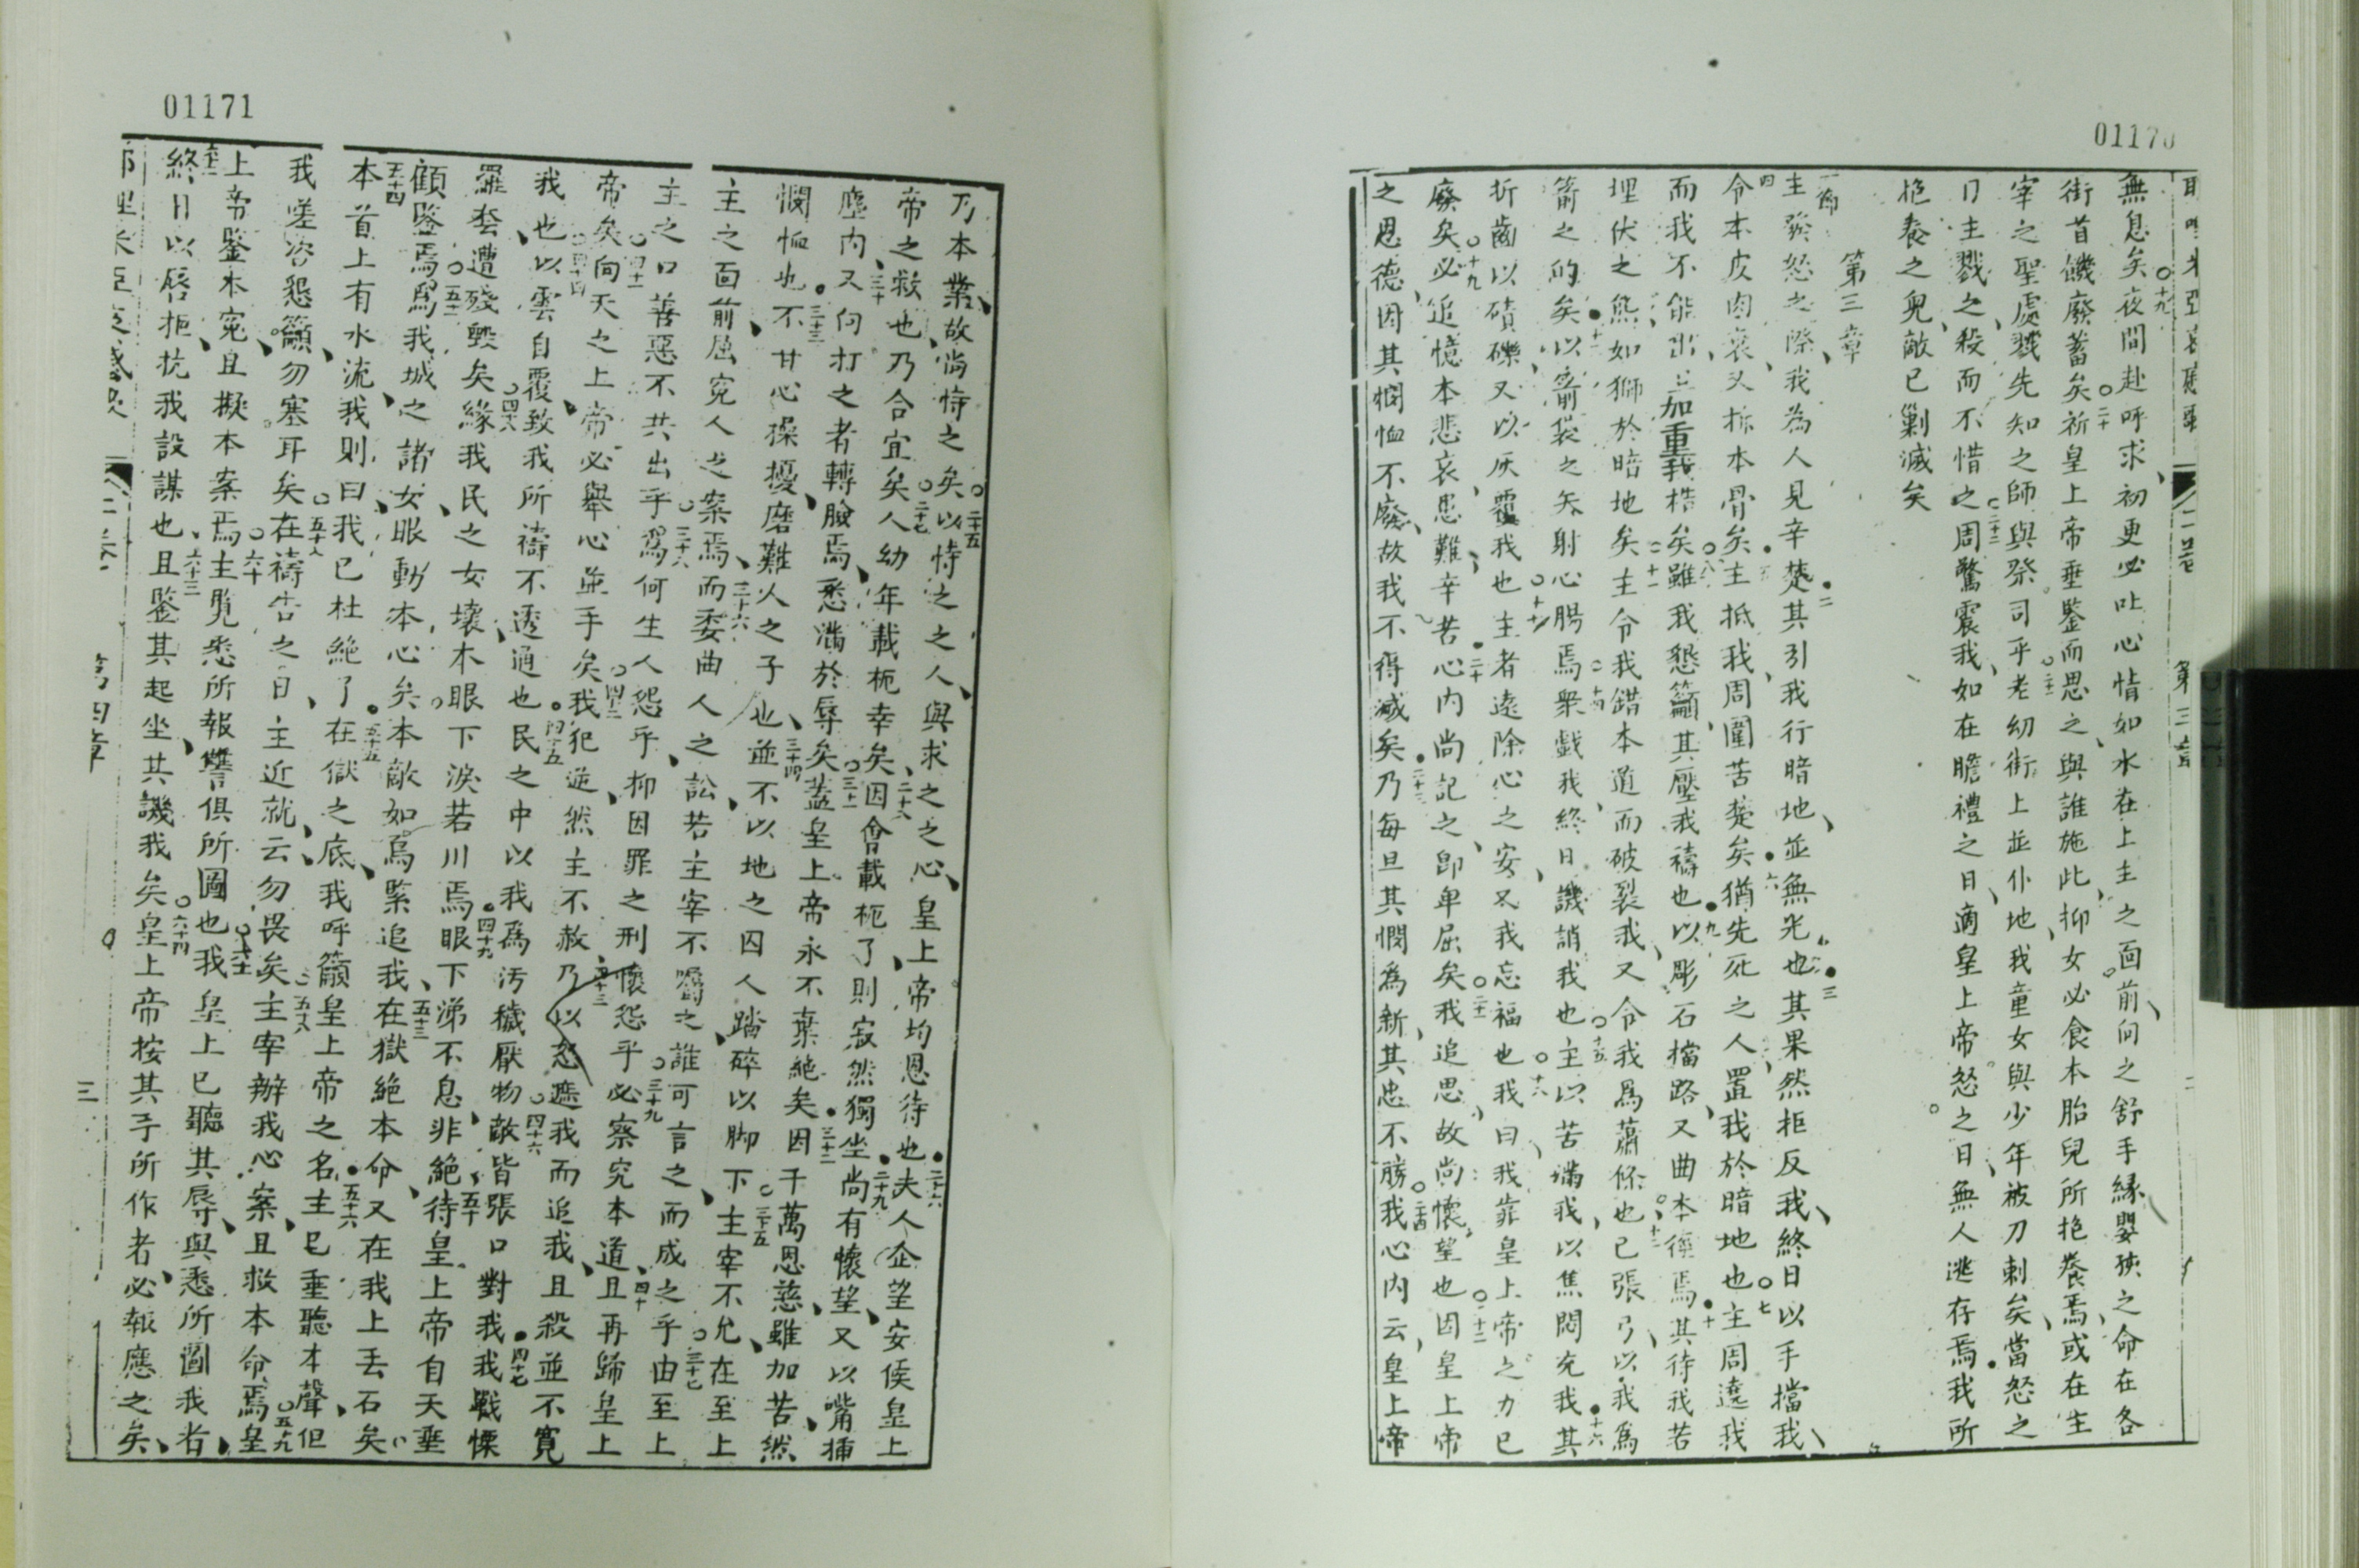 01170
無息矣夜間赴呼求初更必吐心情如水在上主之面前向之舒手緣嬰孩之命在各
街首饑廢蓄矣祈皇上帝垂鑒而思之與誰施此抑女必食本胎兒所抱養焉或在生
宰之聖處戮先知之師與祭司乎老幼街上並仆地我童女與少年被刀刺矣當怒之
日主戮之殺而不惜之周驚震我如在瞻禮之日適皇上帝怒之日無人逃存焉我所
抱養之兒敵已剿滅矣
第三章
主發怒之際我為人見辛楚其引我行暗地並無光也其果然拒反我終日以手擋我
令本皮肉衰又拆本骨矣主抵我周圍苦楚矣猶先死之人置我於暗地也主周遶我
而我不能出並加重我梏矣雖我懇籲其壓我禱也以彫石擋路又曲本徑焉其待我若
埋伏之熊如獅於暗地矣主令我錯本道而破裂我又令我爲蕭條也已張弓以我爲
箭之的矣以箭袋之矢射心腸焉衆戲我終日譏誚我也主以苦滿我以焦悶充我其
折齒以磧礫又以灰覆我也主者遠除心之安又我忘福也我曰我靠皇上帝之力已
廢矣必追憶本悲哀患難辛苦心內尚記之卽卑屈矣我追思故尚懷望也因皇上帝
之恩德因其憫恤不廢故我不得滅矣乃每旦其憫為新其忠不勝我心內云皇上帝
第三章
01171
乃本業故尚恃之矣以恃之之人與求之之心皇上帝均恩待也夫人企望安俟皇上
帝之救也乃合宜矣人幼年載軛幸矣因會載軛了則寂然獨坐尚有懷望又以嘴插
塵內又向打之者轉臉焉悉滿於辱矣蓋皇上帝永不棄絶矣因千萬恩慈雖加苦然
憫恤也不甘心操擾磨難人之子也並不以地之囚人踏碎以脚下主宰不允在至上
主之面前屈寃人之案焉而委曲人之訟若主宰不囑之誰可言之而成之乎由至上
主之口善惡不共出乎爲何生人怨乎抑因罪之刑懷怨乎必察究本道且再歸皇上
帝矣向天之上帝必舉心並手矣我犯逆然主不赦乃以怒遮我而追我且殺並不寬
我也以雲自覆致我所禱不透通也民之中以我爲汚穢厭物敵皆張口對我我戰慄
羅套遭殘毀矣緣我民之女壞本眼下淚若川焉眼下涕不息非絕待皇上帝自天垂
顧鑒焉爲我城之諸女眼動本心矣本敵如鳥緊追我在獄絕本命又在我上丟石矣
本首上有水流我則曰我已杜絶了在獄之底我呼籲皇上帝之名主已垂聽本聲但
我嗟咨懇籲勿塞耳矣在禱告之日主近就云勿畏矣主宰辦我心案且救本命焉皇
上帝鑒本寃且擬本案焉主覽悉所報讐俱所圖也我皇上已聽其辱與悉所圖我者
終日以唇拒抗我設謀也且鑒其起坐其譏我矣皇上帝按其手所作者必報應之矣
第四章
三